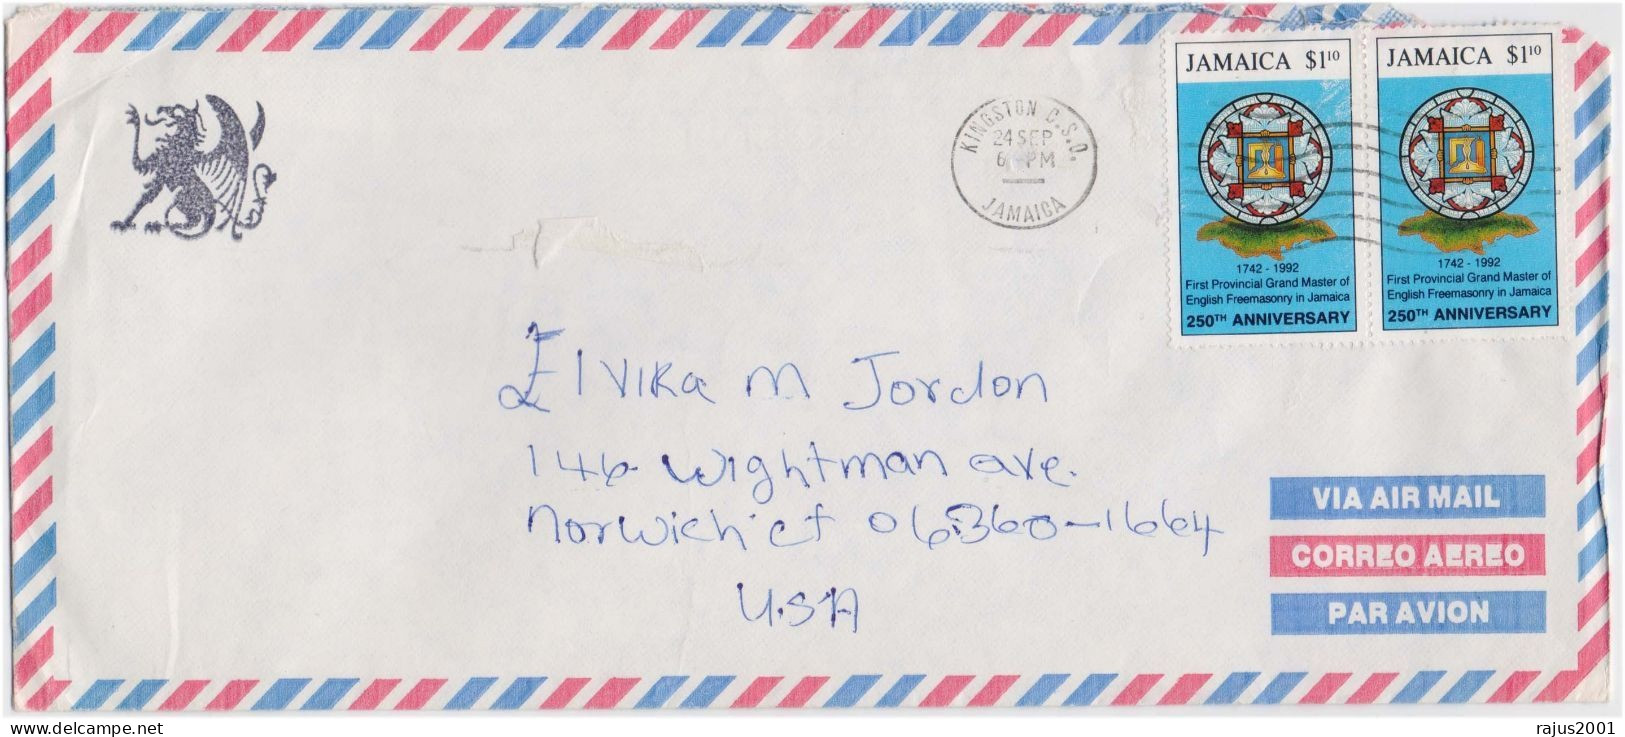 KINGSTON C.S.O.
24 SEP
6 PM
JAMAICA
JAMAICA $1¹⁰
1742 - 1992
First Provincial Grand Master of
English Freemasonry in Jamaica
250TH ANNIVERSARY
JAMAICA $1¹⁰
1742 - 1992
First Provincial Grand Master of
English Freemasonry in Jamaica
250TH ANNIVERSARY
Elvika M Jordon
146 Wightman ave.
Norwich ct 06360-1664
U.S.A
VIA AIR MAIL
CORREO AEREO
PAR AVION
rajus2001